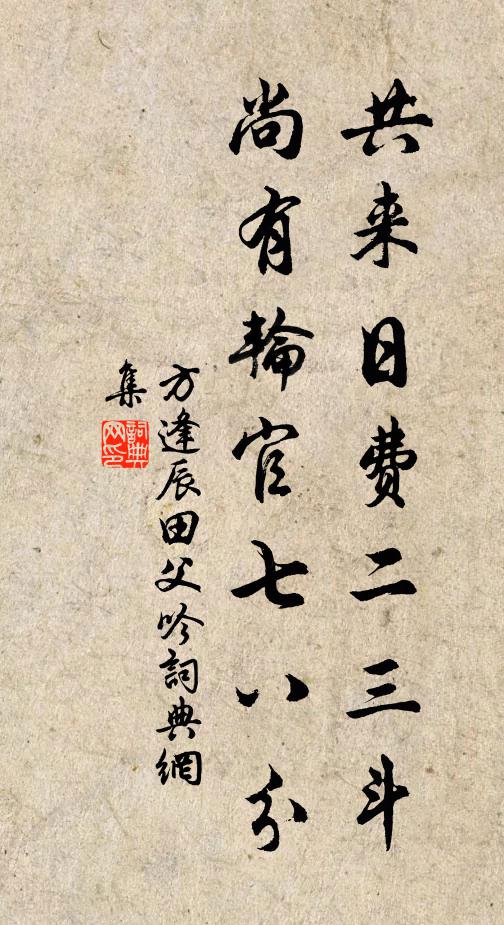 共来日费二三斗
尚有輪官七八分
方逢辰田父吟詞典網
集
詞典
网印